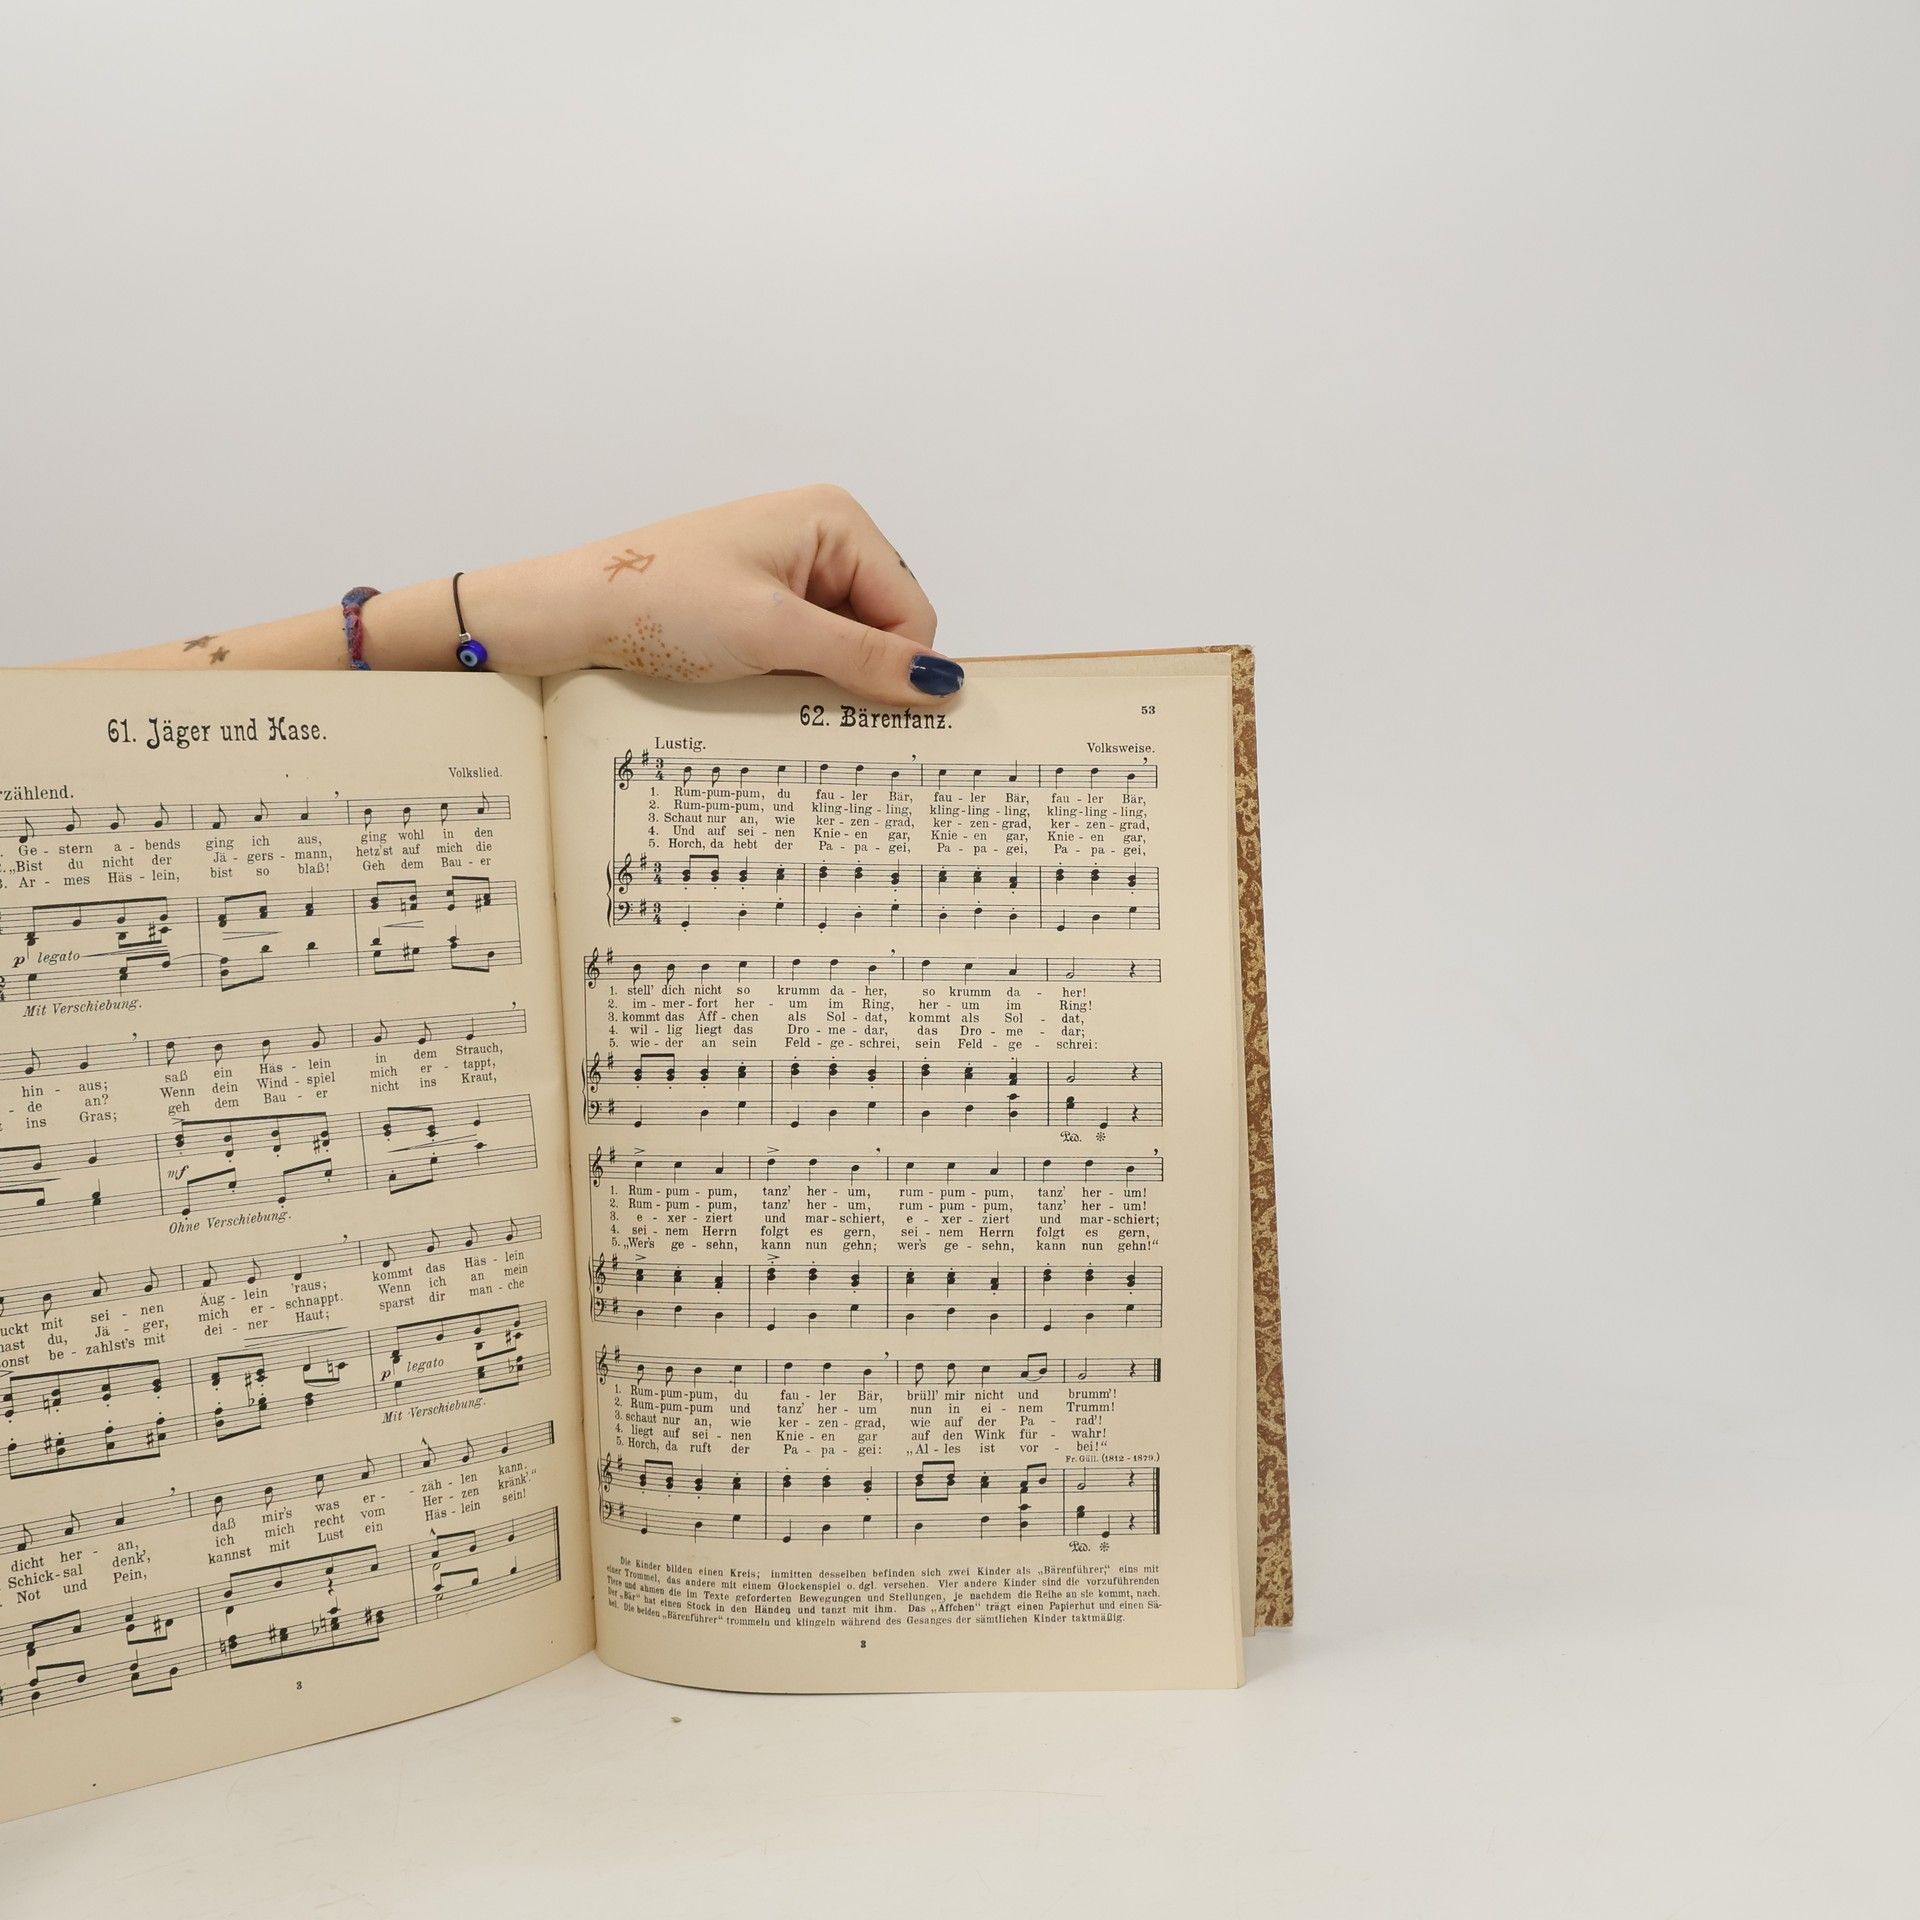 61. Jäger und Hase.
Volkslied.
Ge - stern a - bends ging ich aus, ging wohl in den
„Bist du nicht der Jä - gers - mann, hetz'st auf mich die
3. Ar - mes Häs - lein, bist so blaß! Geh dem Bau - er
p legato
Mit Verschiebung.
hin - aus; saß ein Häs - lein in dem Strauch,
- de an? Wenn dein Wind - spiel mich er - tappt,
ins Gras; geh dem Bau - er nicht ins Kraut,
mf
Ohne Verschiebung.
mit sei - nen Äug - lein 'raus; kommt das Häs - lein
du, Jä - ger, mich er - schnappt. Wenn ich an mein
be - zahlst's mit dei - ner Haut; sparst dir man - che
p legato
Mit Verschiebung.
dicht her - an, daß mir's was er - zäh - len kann.
Schick - sal denk', ich mich recht vom Her - zen kränk'."
Not und Pein, kannst mit Lust ein Häs - lein sein!
3
62. Bärentanz.
53
Lustig.
Volksweise.
1. Rum-pum-pum, du fau - ler Bär, fau - ler Bär, fau - ler Bär,
2. Rum-pum-pum, und kling-ling - ling, kling-ling - ling, kling-ling - ling,
3. Schaut nur an, wie ker - zen - grad, ker - zen - grad, ker - zen - grad,
4. Und auf sei - nen Knie - en gar, Knie - en gar, Knie - en gar,
5. Horch, da hebt der Pa - pa - gei, Pa - pa - gei, Pa - pa - gei,
1. stell' dich nicht so krumm da - her, so krumm da - her!
2. im - mer - fort her - um im Ring, her - um im Ring!
3. kommt das Äff - chen als Sol - dat, kommt als Sol - dat,
4. wil - lig liegt das Dro - me - dar, das Dro - me - dar;
5. wie - der an sein Feld - ge - schrei, sein Feld - ge - schrei:
Ped. *
1. Rum - pum - pum, tanz' her - um, rum - pum - pum, tanz' her - um!
2. Rum - pum - pum, tanz' her - um, rum - pum - pum, tanz' her - um!
3. e - xer - ziert und mar - schiert, e - xer - ziert und mar - schiert;
4. sei - nem Herrn folgt es gern, sei - nem Herrn folgt es gern,
5. „Wer's ge - sehn, kann nun gehn; wer's ge - sehn, kann nun gehn!"
1. Rum-pum-pum, du fau - ler Bär, brüll' mir nicht und brumm'!
2. Rum-pum-pum und tanz' her - um nun in ei - nem Trumm!
3. schaut nur an, wie ker - zen - grad, wie auf der Pa - rad'!
4. liegt auf sei - nen Knie - en gar auf den Wink für - wahr!
5. Horch, da ruft der Pa - pa - gei: „Al - les ist vor - bei!"
Fr. Güll. (1812 - 1879.)
Ped. *
Die Kinder bilden einen Kreis; inmitten desselben befinden sich zwei Kinder als „Bärenführer," eins mit
einer Trommel, das andere mit einem Glockenspiel o. dgl. versehen. Vier andere Kinder sind die vorzuführenden
Tiere und ahmen die im Texte geforderten Bewegungen und Stellungen, je nachdem die Reihe an sie kommt, nach.
Der „Bär" hat einen Stock in den Händen und tanzt mit ihm. Das „Äffchen" trägt einen Papierhut und einen Sä-
bel. Die beiden „Bärenführer" trommeln und klingeln während des Gesanges der sämtlichen Kinder taktmäßig.
3